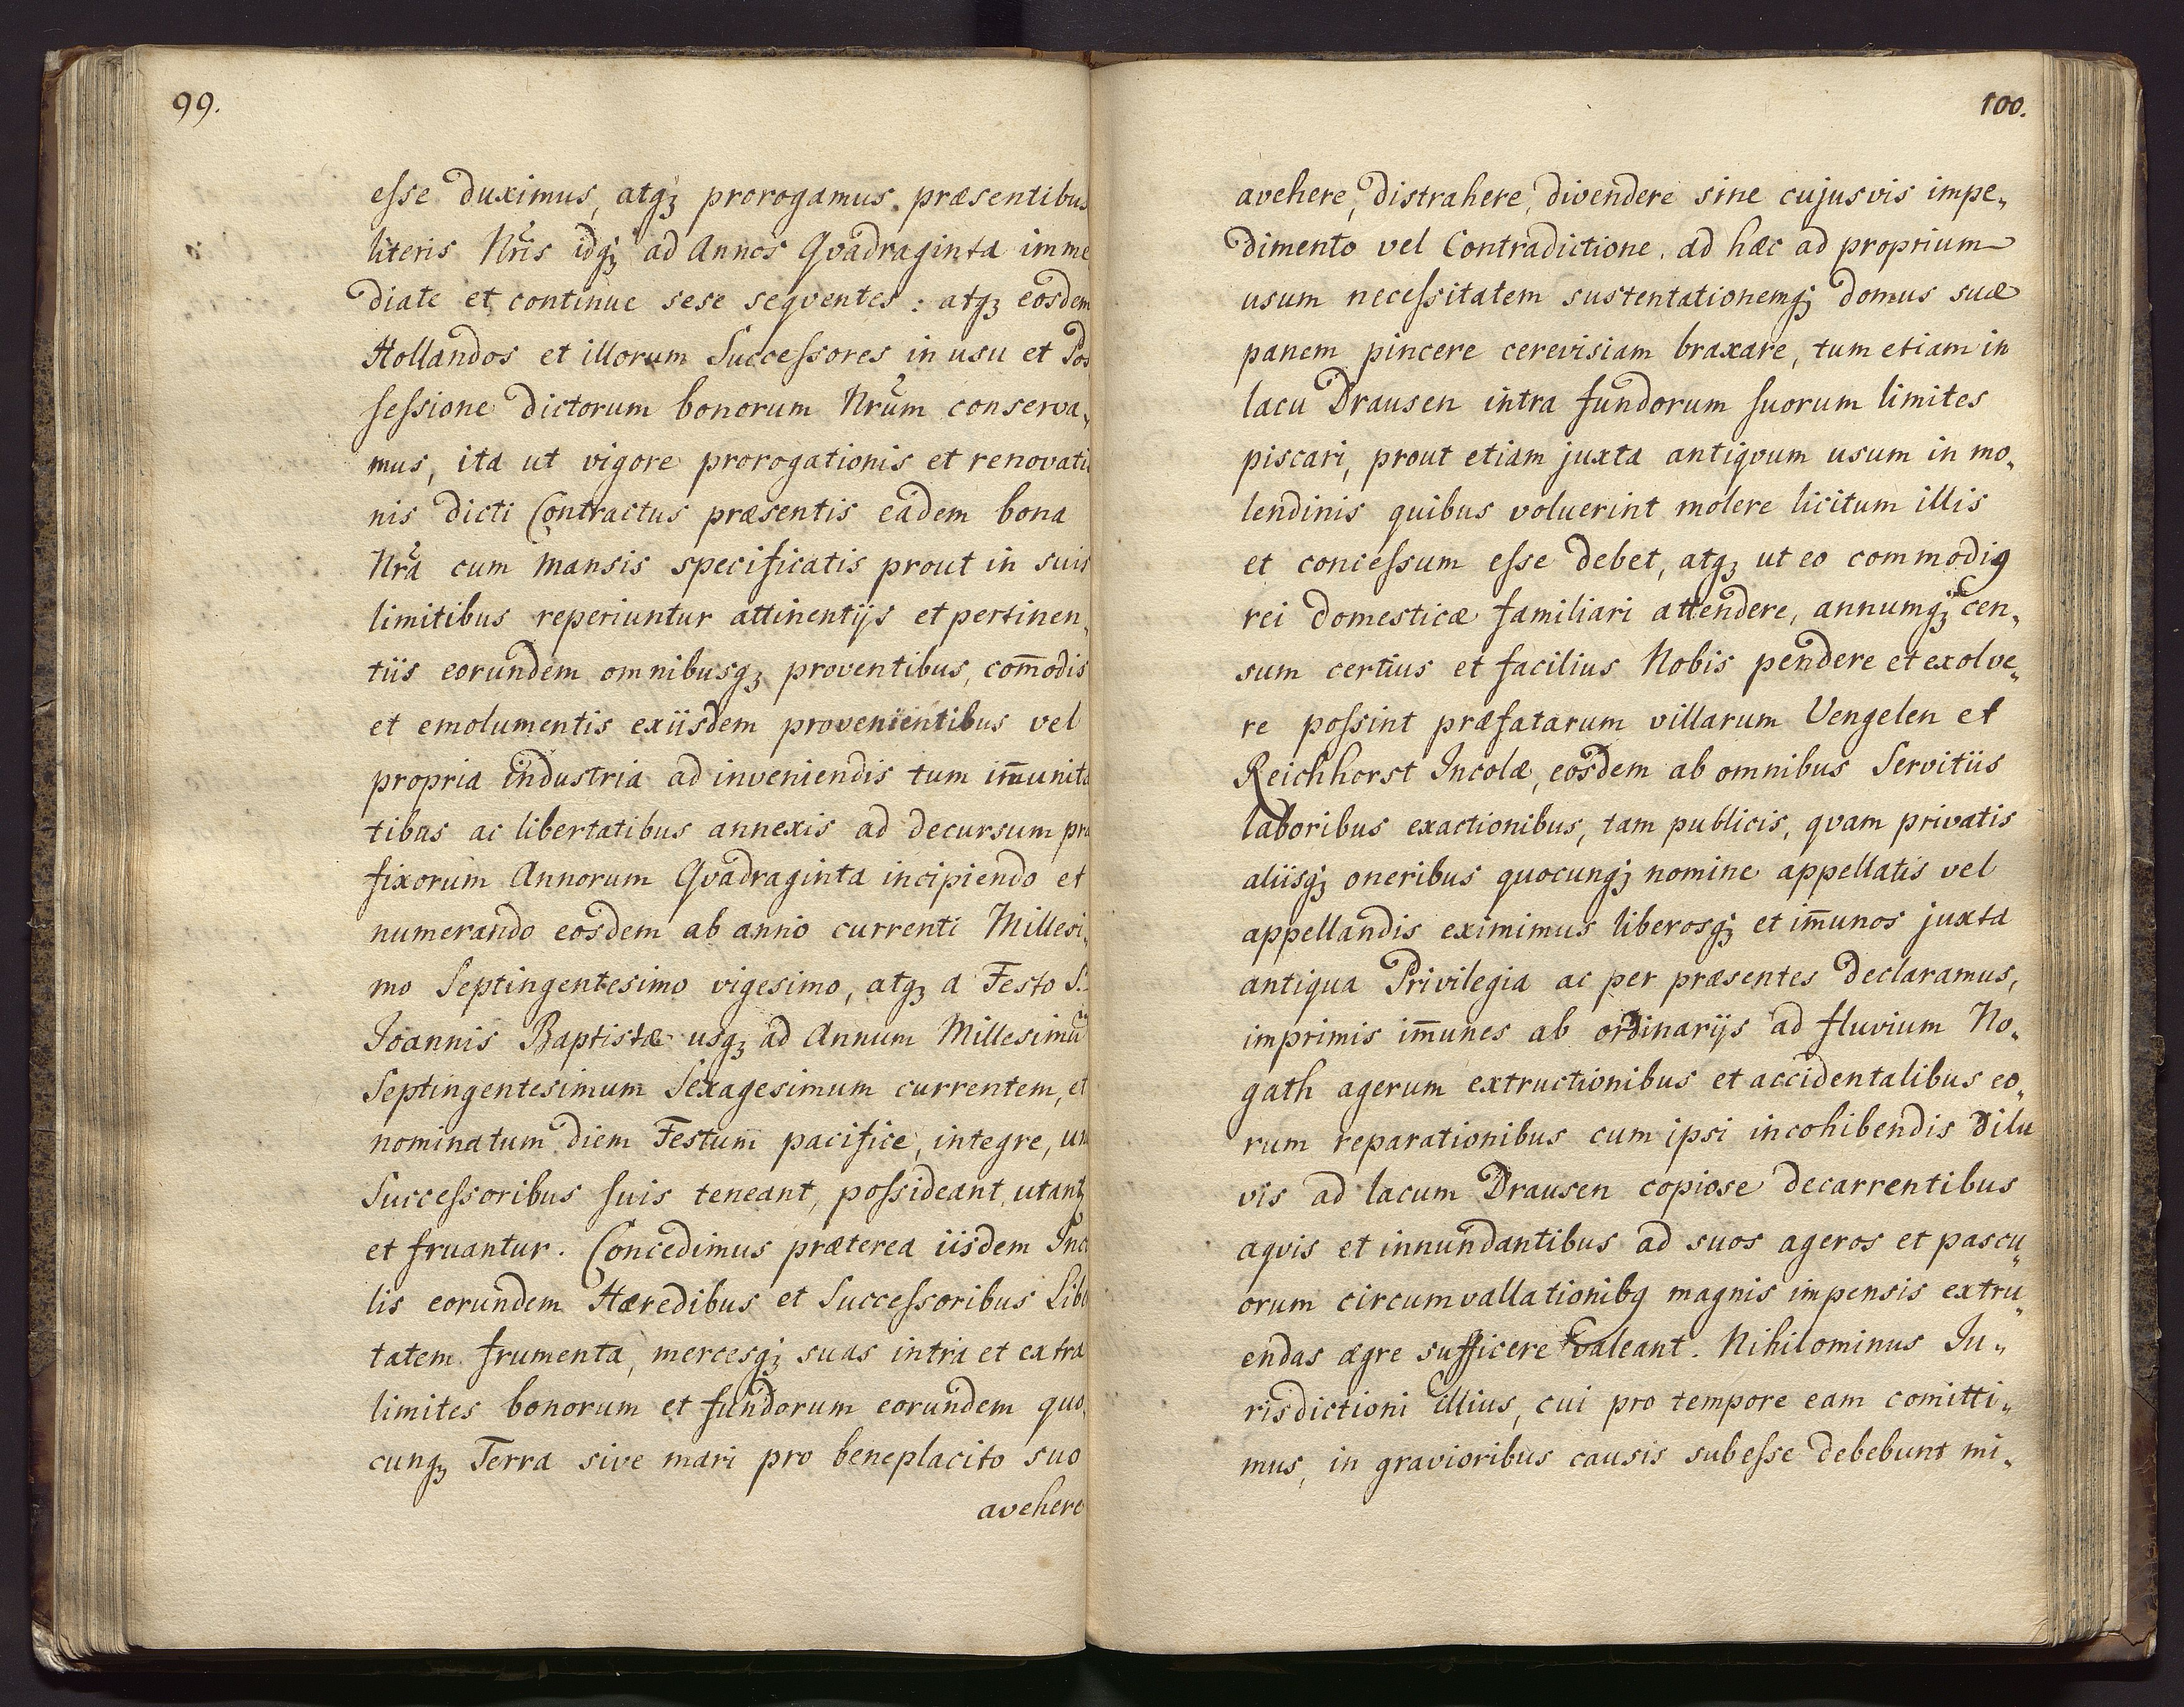 99.
esse duximus, atqꝫ prorogamus præsentibus
literis Nr̃is idqꝫ ad Annos Qvadraginta imme
diate et continue sese seqventes: atqꝫ eosdem
Hollandos et illorum Successores in usu et Pos
sessione dictorum bonorum Nrũm conserva„
mus, ita ut vigore prorogationis et renovatio
nis dicti Contractus præsentis eâdem bona
Nr̃a cum mansis specificatis prout in suis
limitibus reperiuntur attinentijs et pertinen„
tiis eorundem omnibusqꝫ proventibus, com̃odis
et emolumentis exiisdem provenientibus vel
propria industria ad inveniendis tum im̃unita
tibus ac libertatibus annexis ad decursum præ
fixorum Annorum Qvadraginta incipiendo et
numerando eosdem ab anno currenti Millesi„
mo Septingentesimo vigesimo, atqꝫ a Festo S.
Ioannis Baptistæ usqꝫ ad Annum Millesimũ
Septingentesimum Sexagesimum currentem, et
nominatum diem Festum pacifice, integre, un
Successoribus suis teneant, possideant, utantꝫ
et fruantur. Concedimus præterea iisdem Inco
lis eorundem Hæredibus et Successoribus Libe
tatem frumenta, mercesqꝫ suas intra et extra
limites bonorum et fundorum eorundem quo„
cunqꝫ Terra sive mari pro beneplacito suo
avehere
100.
avehere, distrahere, divendere sine cujusvis impe„
dimento vel Contradictione. ad hæc ad proprium
usum necessitatem sustentationemqꝫ domus suæ
panem pincere cerevisiam braxare, tum etiam in
lacu Drausen intra fundorum suorum limites
piscari, prout etiam juxta antiqvum usum in mo„
lendinis quibus voluerint molere licitum illis
et concessum esse debet, atqꝫ ut eo commodiꝯ
rei domesticæ familiari attendere, annumqꝫ cen„
sum certius et facilius Nobis pendere et exolve„
re possint præfatarum villarum Vengelen et
Reichhorst Incolæ, eosdem ab omnibus Servitiis
laboribus exactionibus, tam publicis, qvam privatis
aliisqꝫ oneribus quocunqꝫ nomine appellatis vel
appellandis eximimus liberosqꝫ et im̃unos juxta
antiqua Privilegia ac per præsentes declaramus,
imprimis im̃unes ab ordinarijs ad fluvium No„
gath agerum extructionibus et accidentalibus eo„
rum reparationibus cum ipsi incohibendis dilu
vis ad lacum Drausen copiose decarrentibus
aqvis et innundantibus ad suos ageros et pascu„
orum circumvallationibꝯ magnis impensis extru„
endas ægre sufficere valeant. Nihilominus Ju„
risdictioni illius, cui pro tempore eam comitti„
mus, in gravioribus causis subesse debebunt mi„